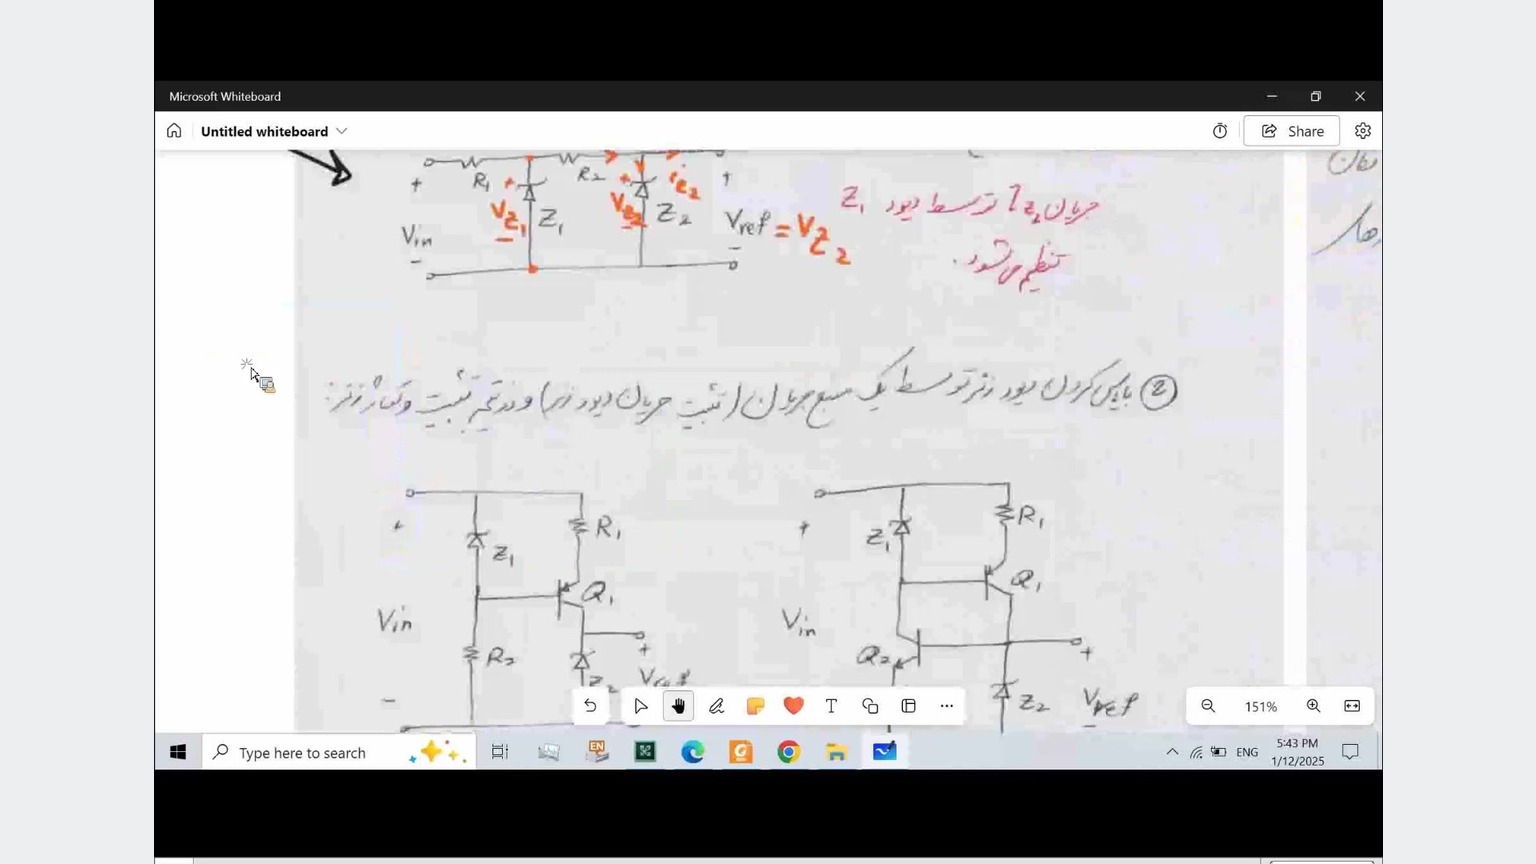 Microsoft Whiteboard
Untitled whiteboard
Share
R1
R2
+
+
+
+
iz2
Vz1
Z1
Vz2
Z2
Vin
Vref = Vz2
-
-
جریان iz2 توسط دیود Z1
تنظیم می‌شود.
② بایاس کردن دیود زنر توسط یک منبع جریان (تثبیت جریان دیود زنر) و در نتیجه تثبیت ولتاژ زنر:
+
Z1
R1
Q1
Vin
R2
+
Z2
Vref
-
+
Z1
R1
Q1
Vin
Q2
+
Z2
Vref
-
151%
Type here to search
EN
ENG
5:43 PM
1/12/2025